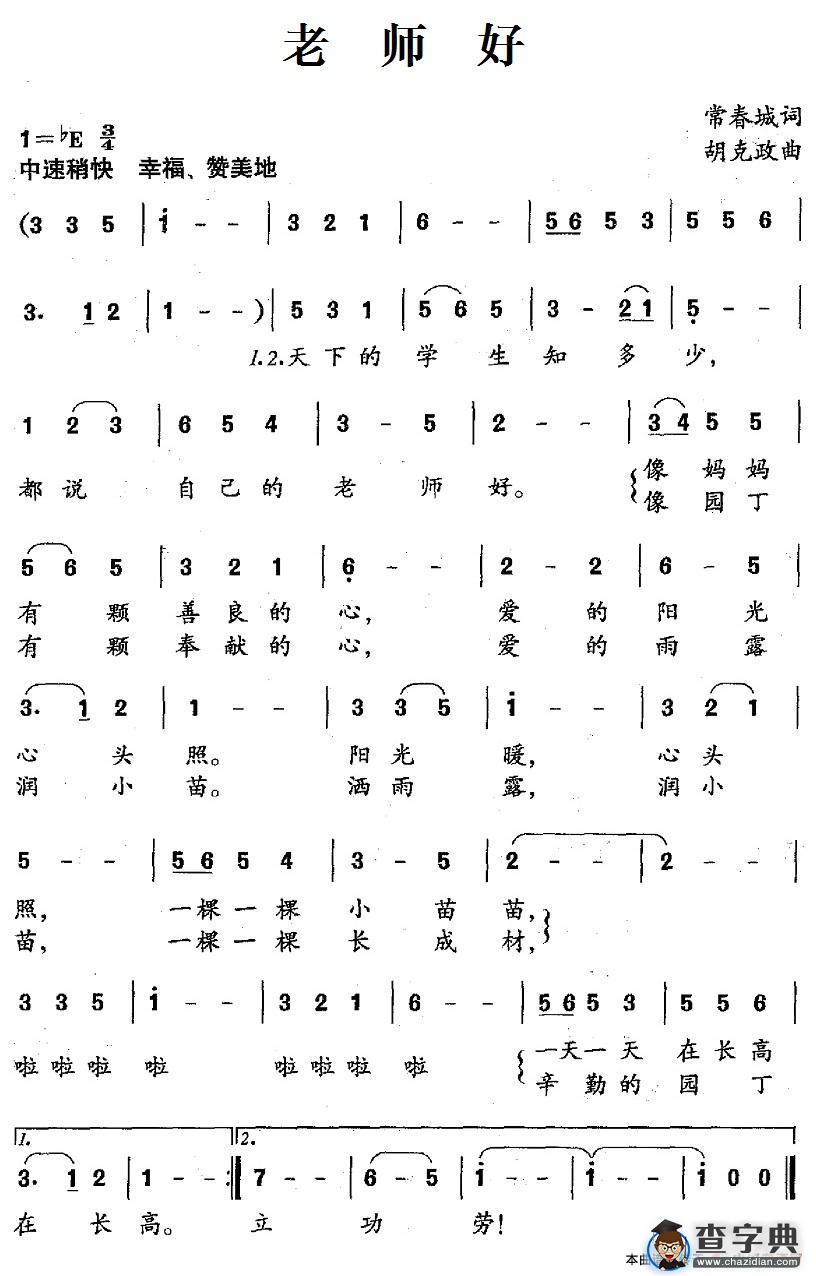 老 师 好
1=♭E 3/4
常春城词
中速稍快 幸福、赞美地
胡克政曲
(3 3 5 | i - - | 3 2 1 | 6 - - | 56 5 3 | 5 5 6 |
3. 1 2 | 1 - -)| 5 3 1 | 5 6 5 | 3 - 21 | 5 - - |
1.2.天下的 学 生 知 多 少,
1 2 3 | 6 5 4 | 3 - 5 | 2 - - | 34 5 5 |
都说 自己的 老 师 好。 像妈妈
像园丁
5 6 5 | 3 2 1 | 6 - - | 2 - 2 | 6 - 5 |
有 颗 善良的 心, 爱 的 阳 光
有 颗 奉献的 心, 爱 的 雨 露
3. 1 2 | 1 - - | 3 3 5 | i - - | 3 2 1 |
心 头 照。 阳光 暖, 心头
润 小 苗。 洒雨 露, 润小
5 - - | 56 5 4 | 3 - 5 | 2 - - | 2 - - |
照, 一棵一棵 小 苗 苗,
苗, 一棵一棵 长 成 材,
3 3 5 | i - - | 3 2 1 | 6 - - | 56 5 3 | 5 5 6 |
啦啦啦 啦 啦啦啦 啦 一天一天 在长高
辛勤的园丁
1. 2.
3. 1 2 | 1 - - :| 7 - - | 6 - 5 | i - - | i - - | i 0 0 ‖
在 长 高。 立 功 劳!
本曲
查字典
www.chazidian.com